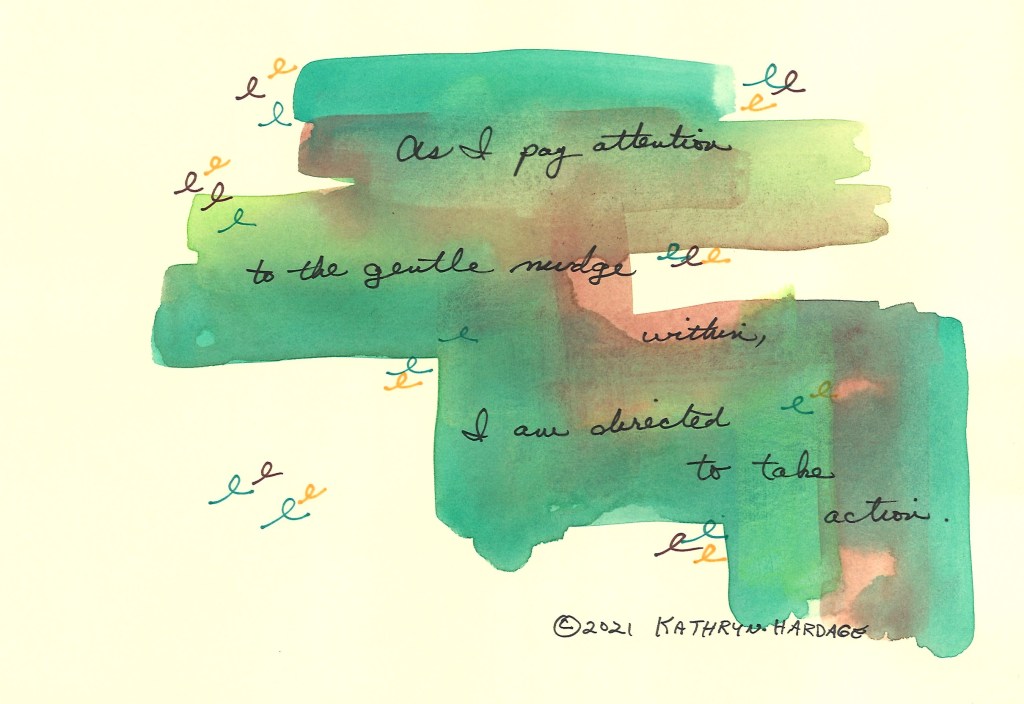 As I pay attention
to the gentle nudge
within,
I am directed
to take
action.
©2021 KATHRYN HARDAGE